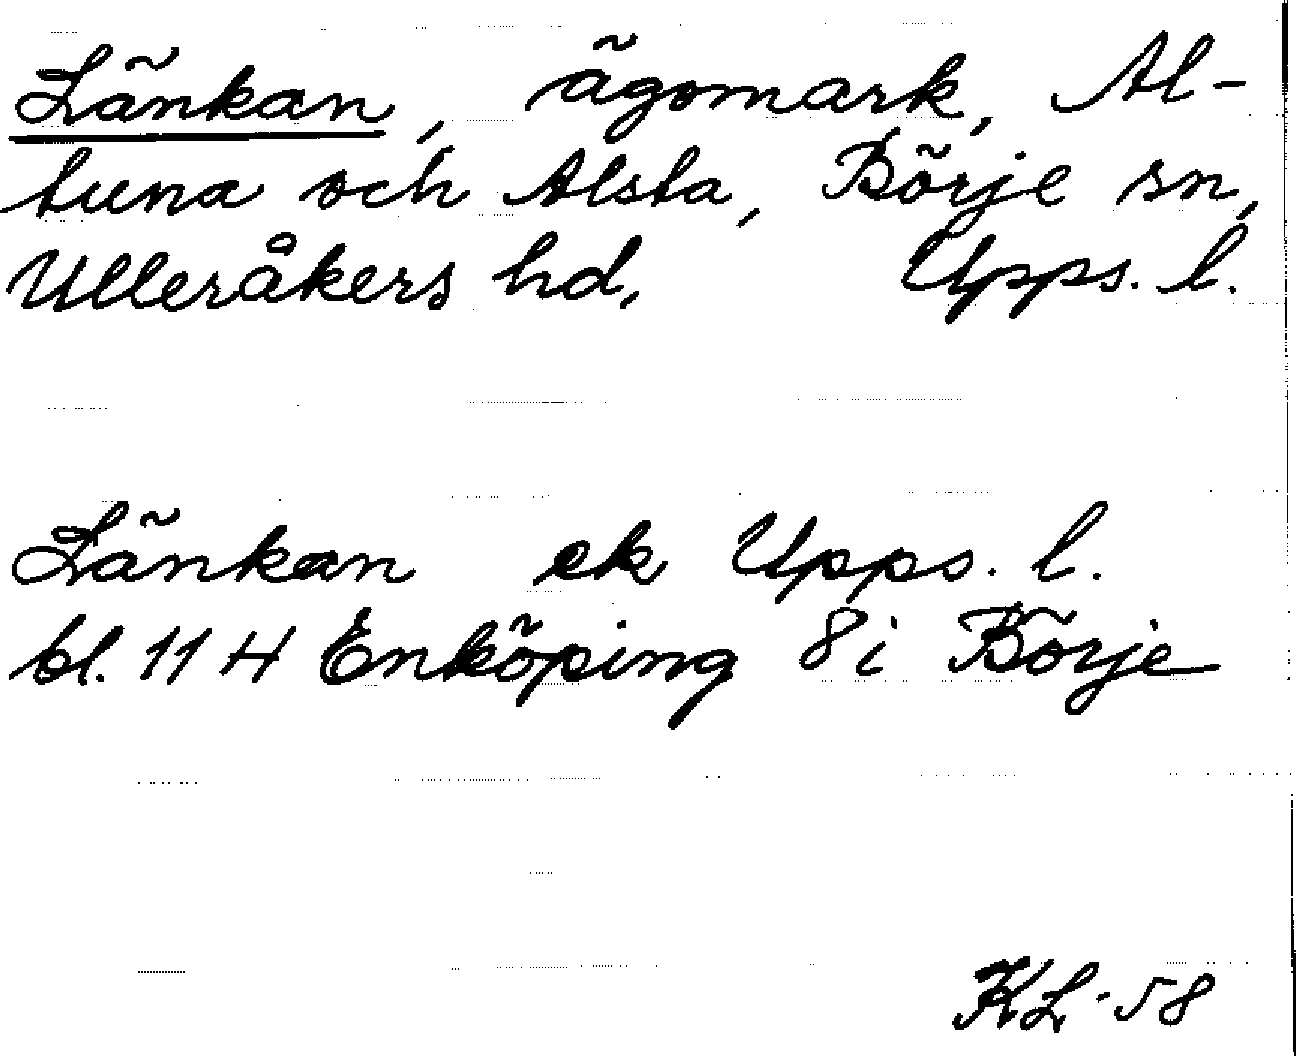 Länkan, ägomark, Al-
tuna och Alsta, Börje sn,
Ulleråkers hd, Upps. l.
Länkan ek Upps. l.
bl. 11 H Enköping 8i Börje
KL-58